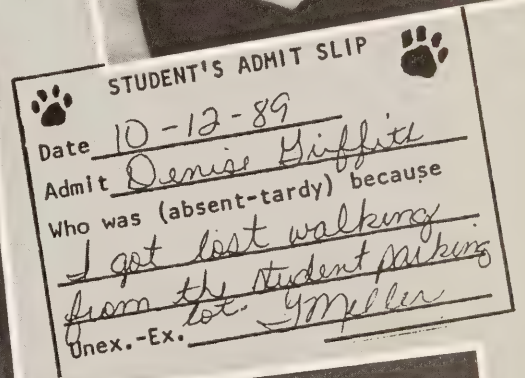 STUDENT'S ADMIT SLIP
Date 10-12-89
Admit Denise Griffith
Who was (absent-tardy) because
I got lost walking
from the student parking
lot.
Unex.-Ex. GMeller